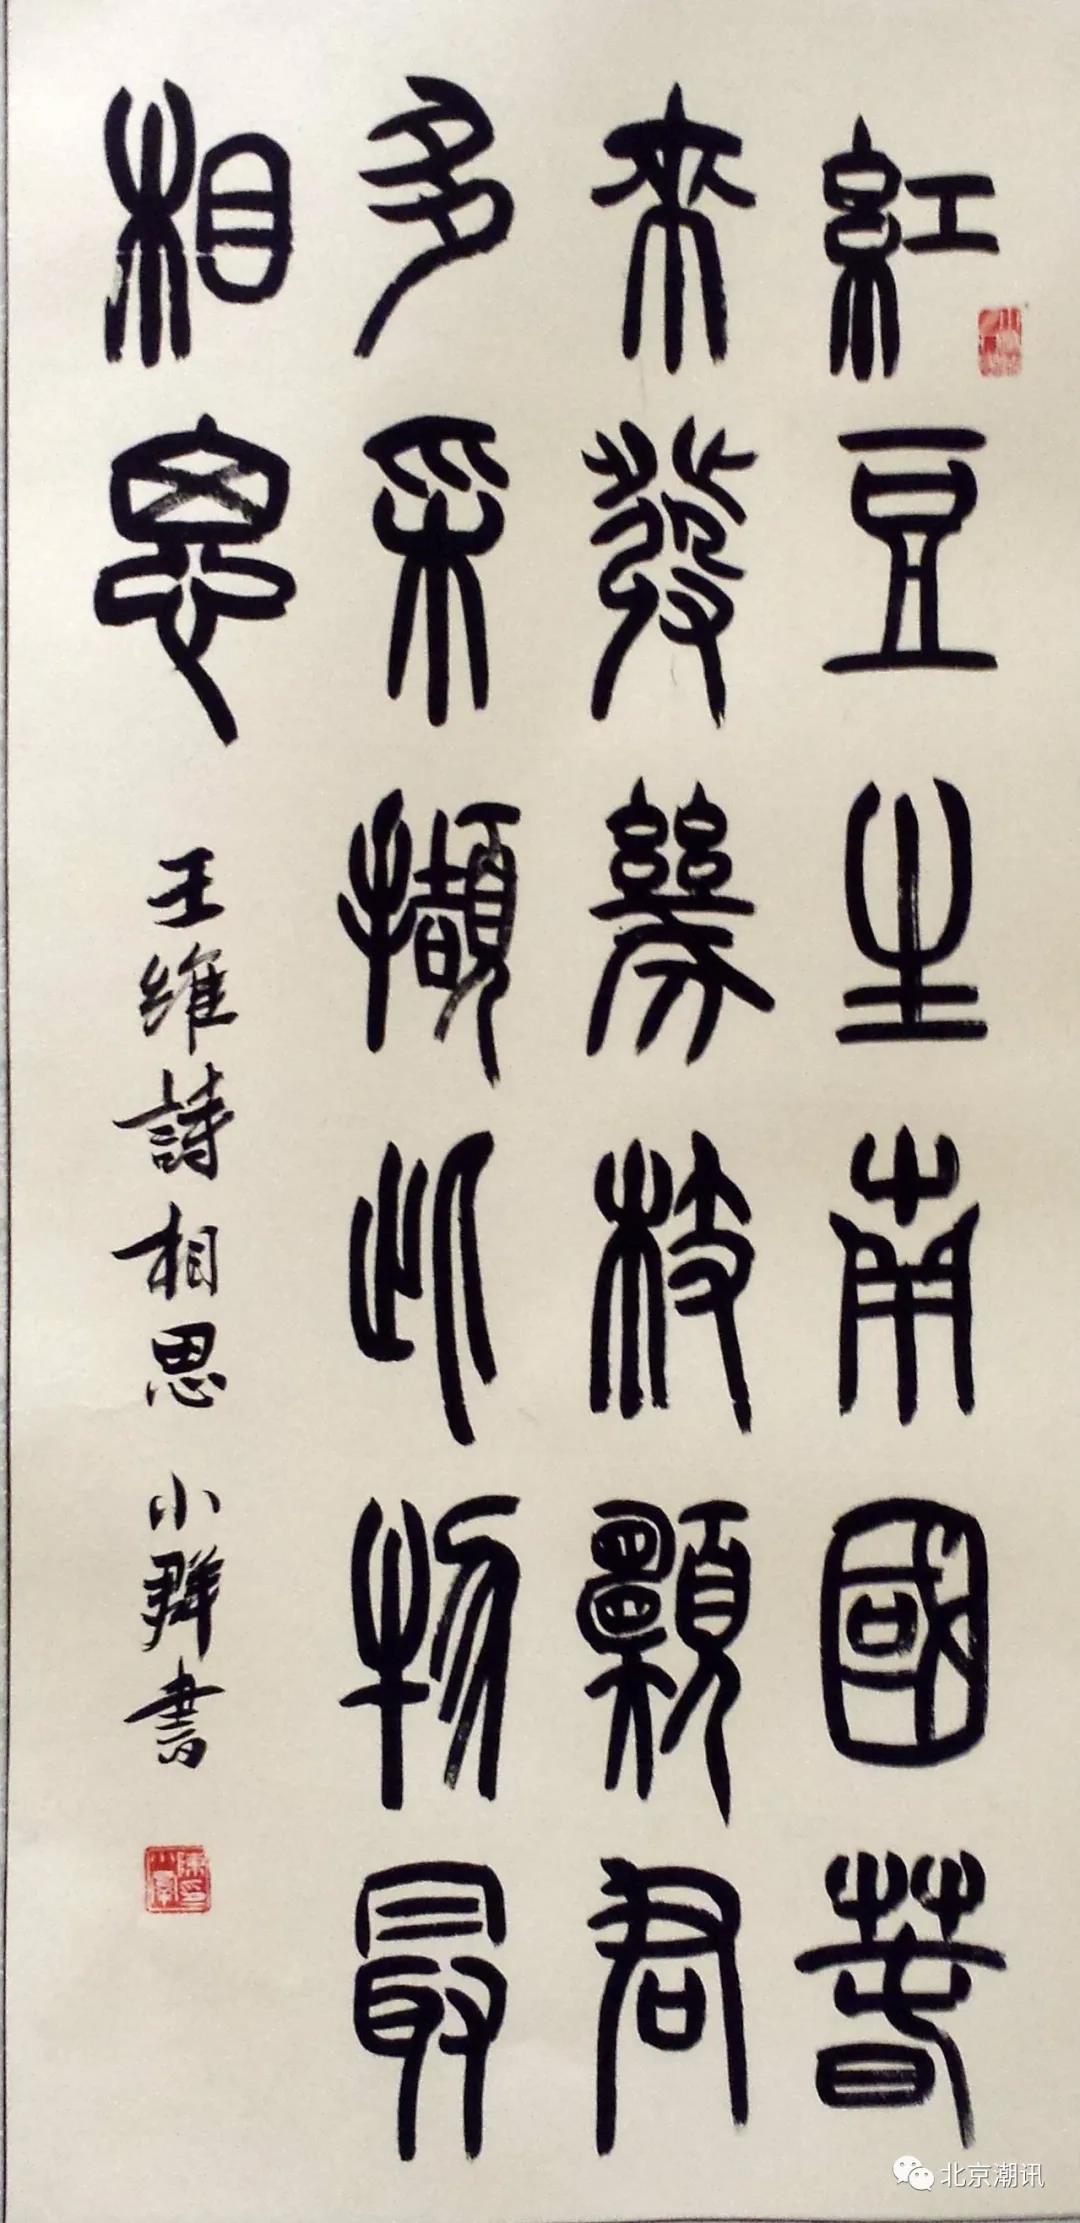 紅豆生南國春
來發幾枝願君
多采擷此物最
相思
王維詩相思 小群書
陳印小羣
北京潮讯